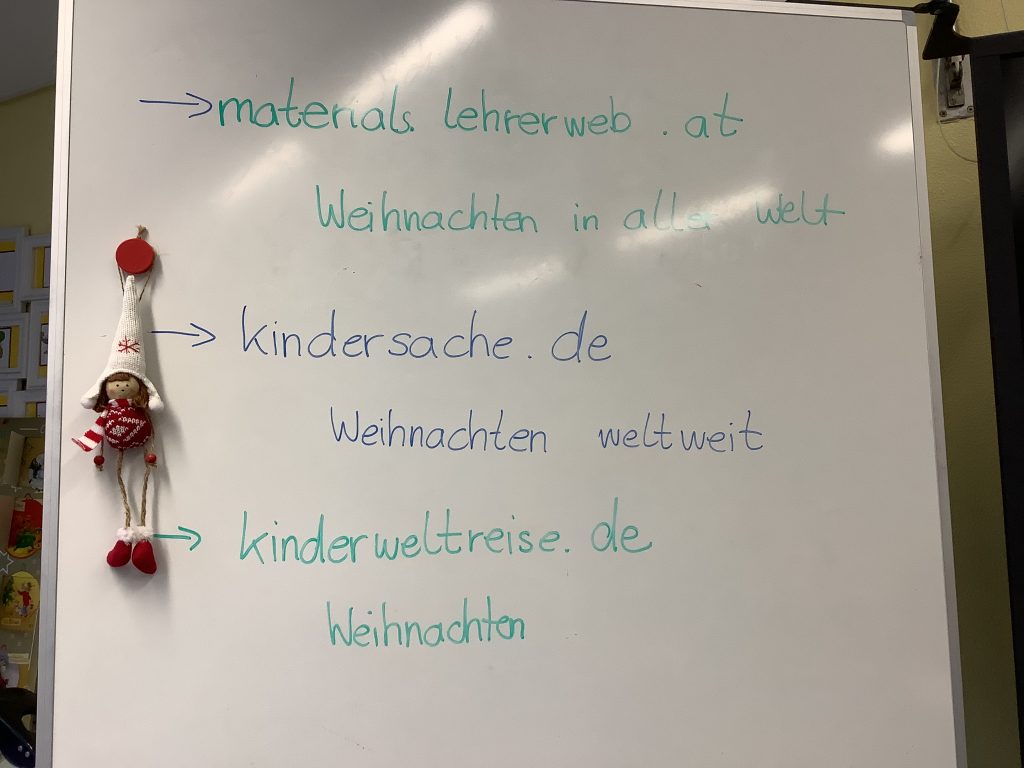 → materials. lehrerweb . at
Weihnachten in aller Welt
→ kindersache . de
Weihnachten weltweit
→ kinderweltreise. de
Weihnachten